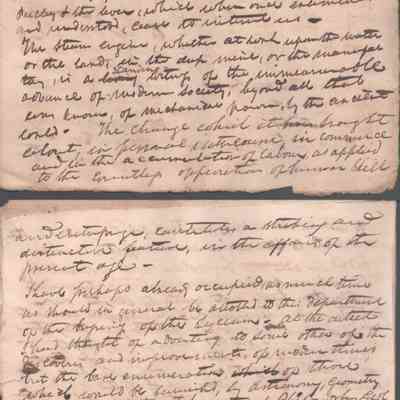 Pulley & the lever, which when once examined
and understood, cease to interest us —
The Steam engine, whether at work upon the water
or the land, in the deep mine, or the manufac
tory, is a living history of the immeasurable
advance of modern society, beyond all that
ever known, of mechanical power, by the ancient
world. The change which it has brought
about, in personal intercourse in commerce
and in the accumulation of labour, as applied
to the countless opperations of human skill
and enterprize, constitutes a striking and
distinctive feature, in the affairs of the
present age —
I have perhaps already occupied as much time
as should in general be allotted to this department
of the of the Lyceum. At the outset
I had thought of adverting to some other of the
discoveries and improvements, of modern times
but the bare enumeration of those
which could be furnished, by astronomy, Geometry